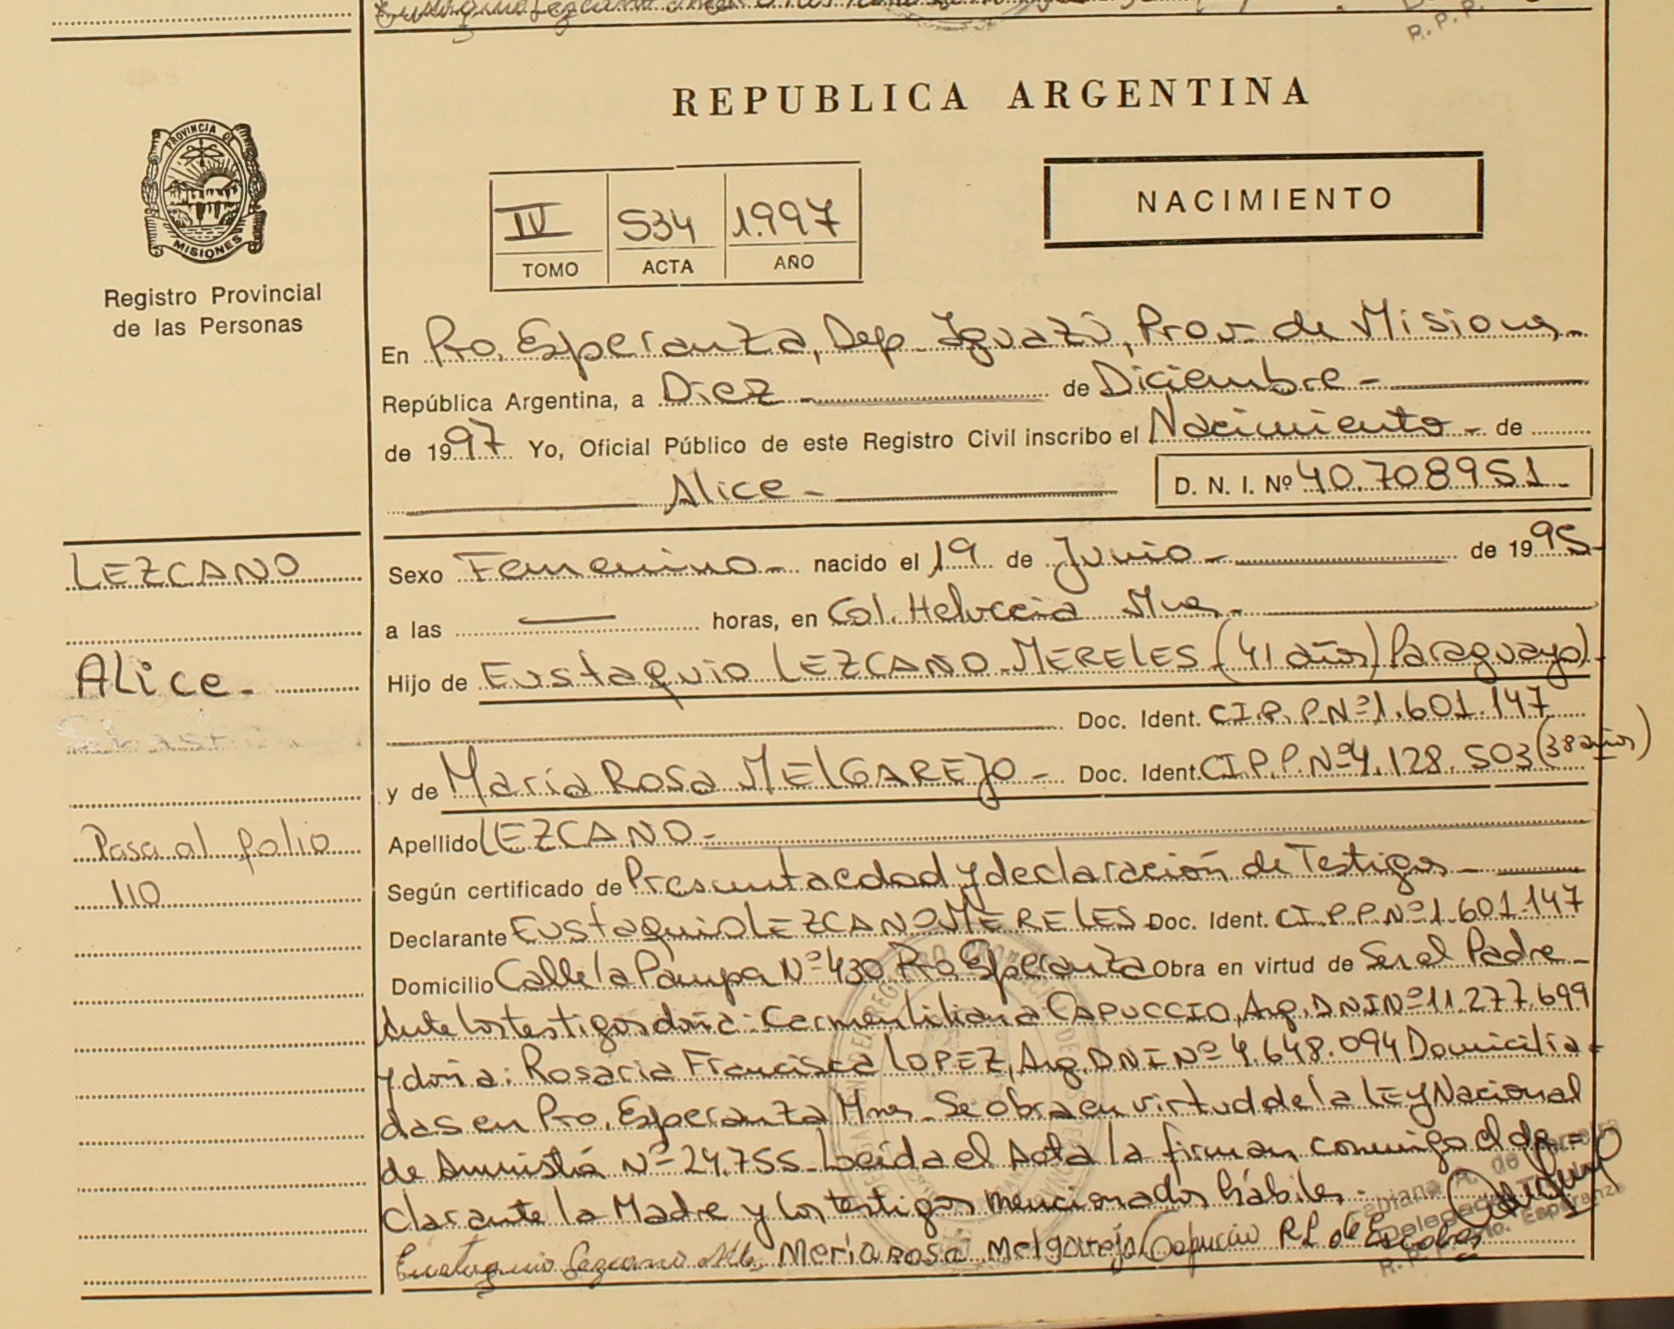 R.P.P.
REPUBLICA ARGENTINA
PROVINCIA DE
MISIONES
Registro Provincial
de las Personas
IV 534 1.997
TOMO ACTA AÑO
NACIMIENTO
En Pto. Esperanza, Dep. Iguazú, Prov. de Misiones,-
República Argentina, a Diez - de Diciembre -
de 1997 Yo, Oficial Público de este Registro Civil inscribo el Nacimiento - de
Alice - D. N. I. Nº 40.708951-
LEZCANO
Alice.
Pasa al folio
110
Sexo Femenino - nacido el 19 de Junio - de 1995-
a las — horas, en Col. Helvecia Mnes.-
Hijo de Eustaquio LEZCANO MERELES (41 años) Paraguayo)-
Doc. Ident. C.I.P.P Nº 1.601.147
y de María Rosa MELGAREJO - Doc. Ident. C.I.P.P. Nº 4.128.503 (38 años)
Apellido LEZCANO.-
Según certificado de Presunta edad y declaración de Testigos -
Declarante Eustaquio LEZCANO MERELES Doc. Ident. C.I.P.P. Nº 1.601.147
Domicilio Calle la Pampa Nº 430 Pto. Esperanza Obra en virtud de Ser el Padre -
Ante los testigos doña: Carmen Liliana CAPUCCIO, Arg. DNI Nº 11.277.699
y doña: Rosaria Francisca LOPEZ, Arg. DNI Nº 4.648.094 Domicilia-
das en Pto. Esperanza Mnes - Se obra en virtud de la LEY Nacional
de Amnistía Nº 24.755 - Leída el Acta la firman conmigo el de=
clarante la Madre y los testigos mencionados hábiles.-
Eustaquio Lezcano María Rosa Melgarejo Capuccio R L de Escobar